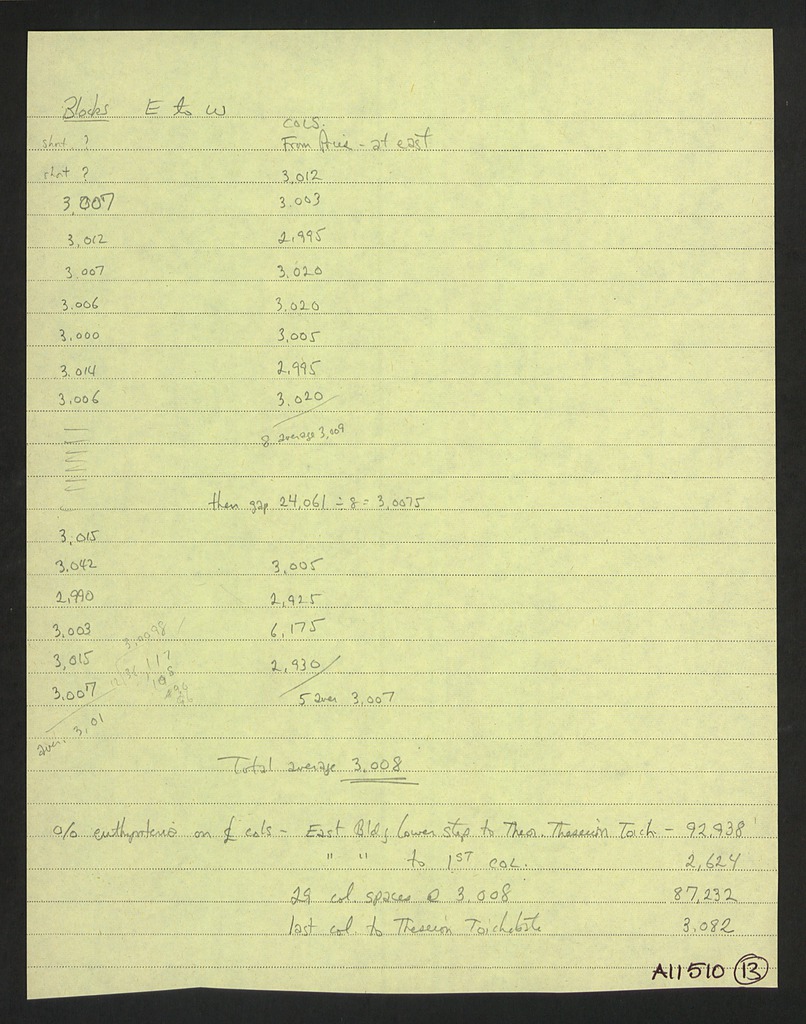 Blocks E to W
COLS.
short ? From Price - at east
short ? 3,012
3,007 3.003
3,012 2,995
3.007 3.020
3.006 3.020
3.000 3,005
3.014 2,995
3,006 3.020
8 average 3,009
then gap 24,061 ÷ 8 = 3,0075
3,015
3.042 3,005
2,990 2,925
3,003 6,175
3,0098
3,015 2,930
12,36 117
108
3.007 5 aver 3,007
aver. 3,01
Total average 3,008
o/o euthynteria on ₵ cols - East Bldg lower step to Theor. Theseion Toich - 92,938
" " to 1ST COL. 2,624
29 col. spaces @ 3.008 87,232
last col. to Theseion Toichobate 3.082
A11510 13